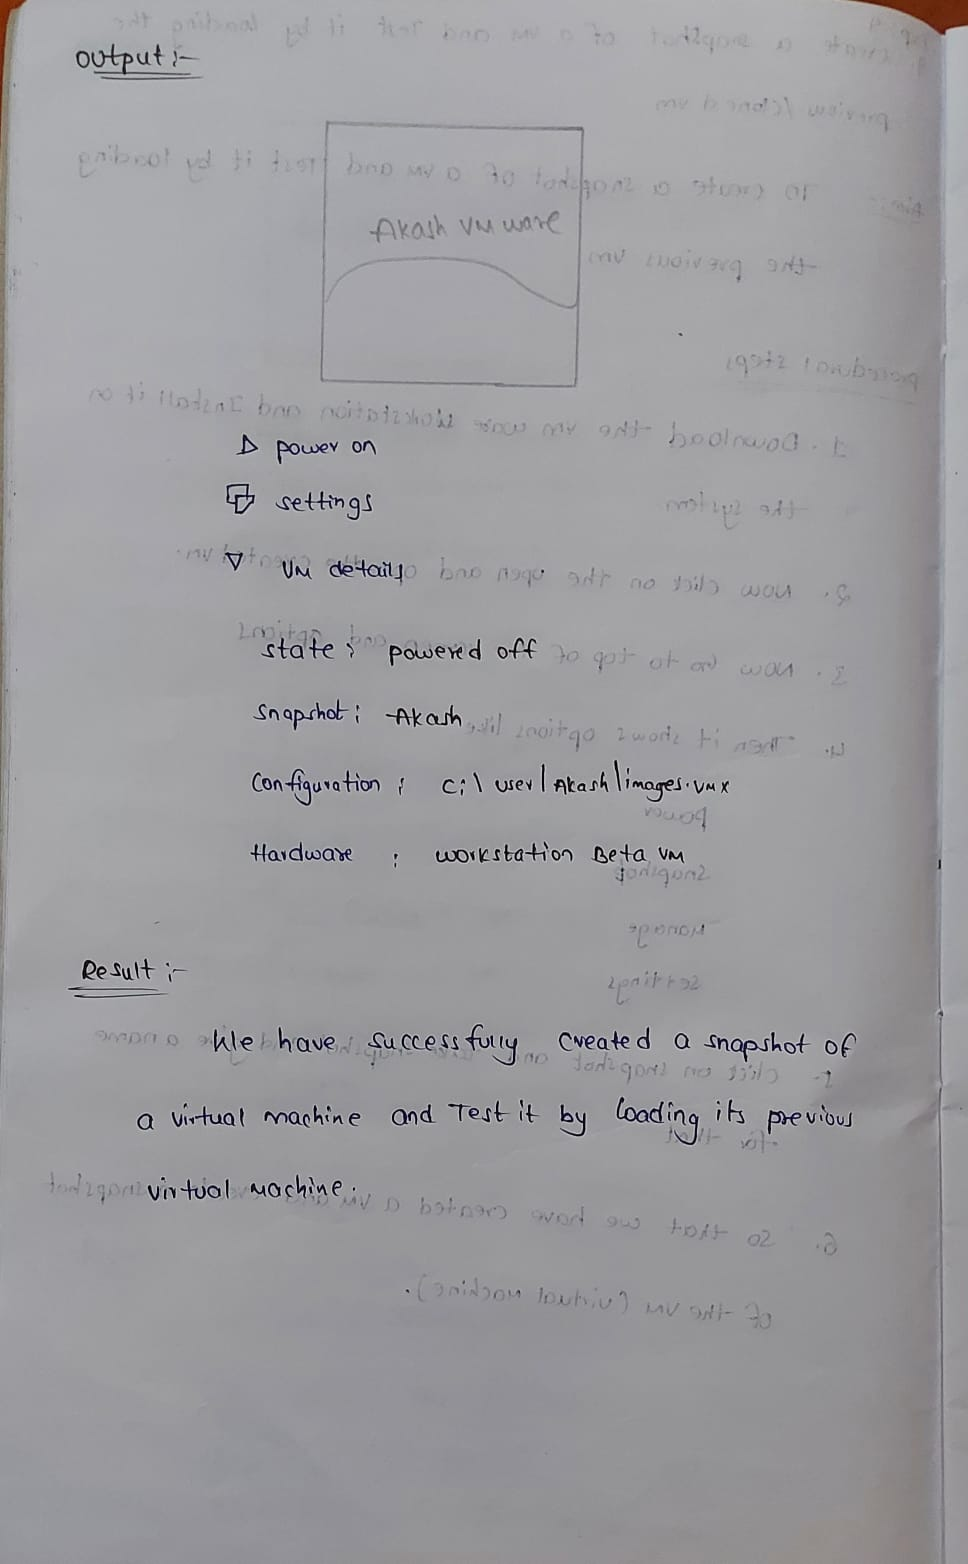 Output :-
Akash VM ware
power on
settings
VM details
state : powered off
Snapshot : Akash
Configuration : C:\ user | Akash | images.vmx
Hardware : workstation Beta VM
Result :-
We have successfully created a snapshot of
a virtual machine and Test it by loading its previous
virtual machine.